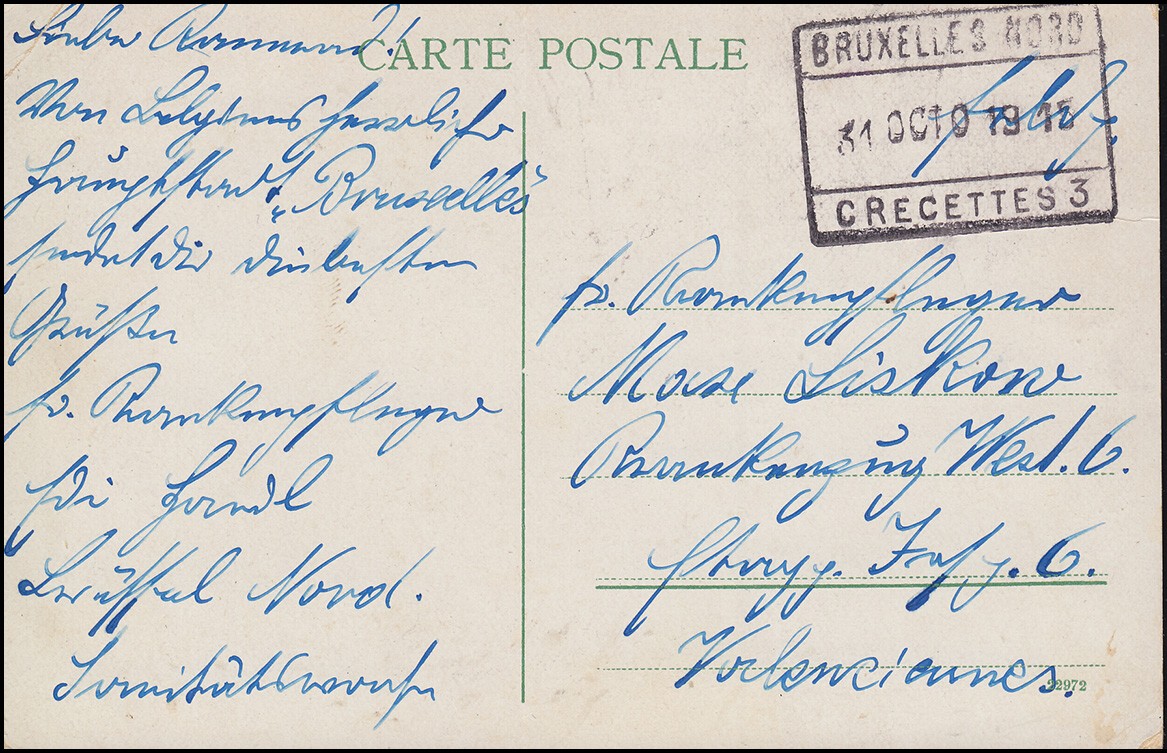 CARTE POSTALE
BRUXELLES NORD
31 OCTO 19 15
CRECETTES 3
Liebe
Von Belgiens herrliche
Hauptstadt „Bruxelles"
sendet dir die besten
Grüße
fr. Krankenpfleger
Brüssel Nord.
Sanitätswache
fr. Krankenpfleger
Max Liskow
Krankenzug West. 6.
6.
Valenciennes.
22972